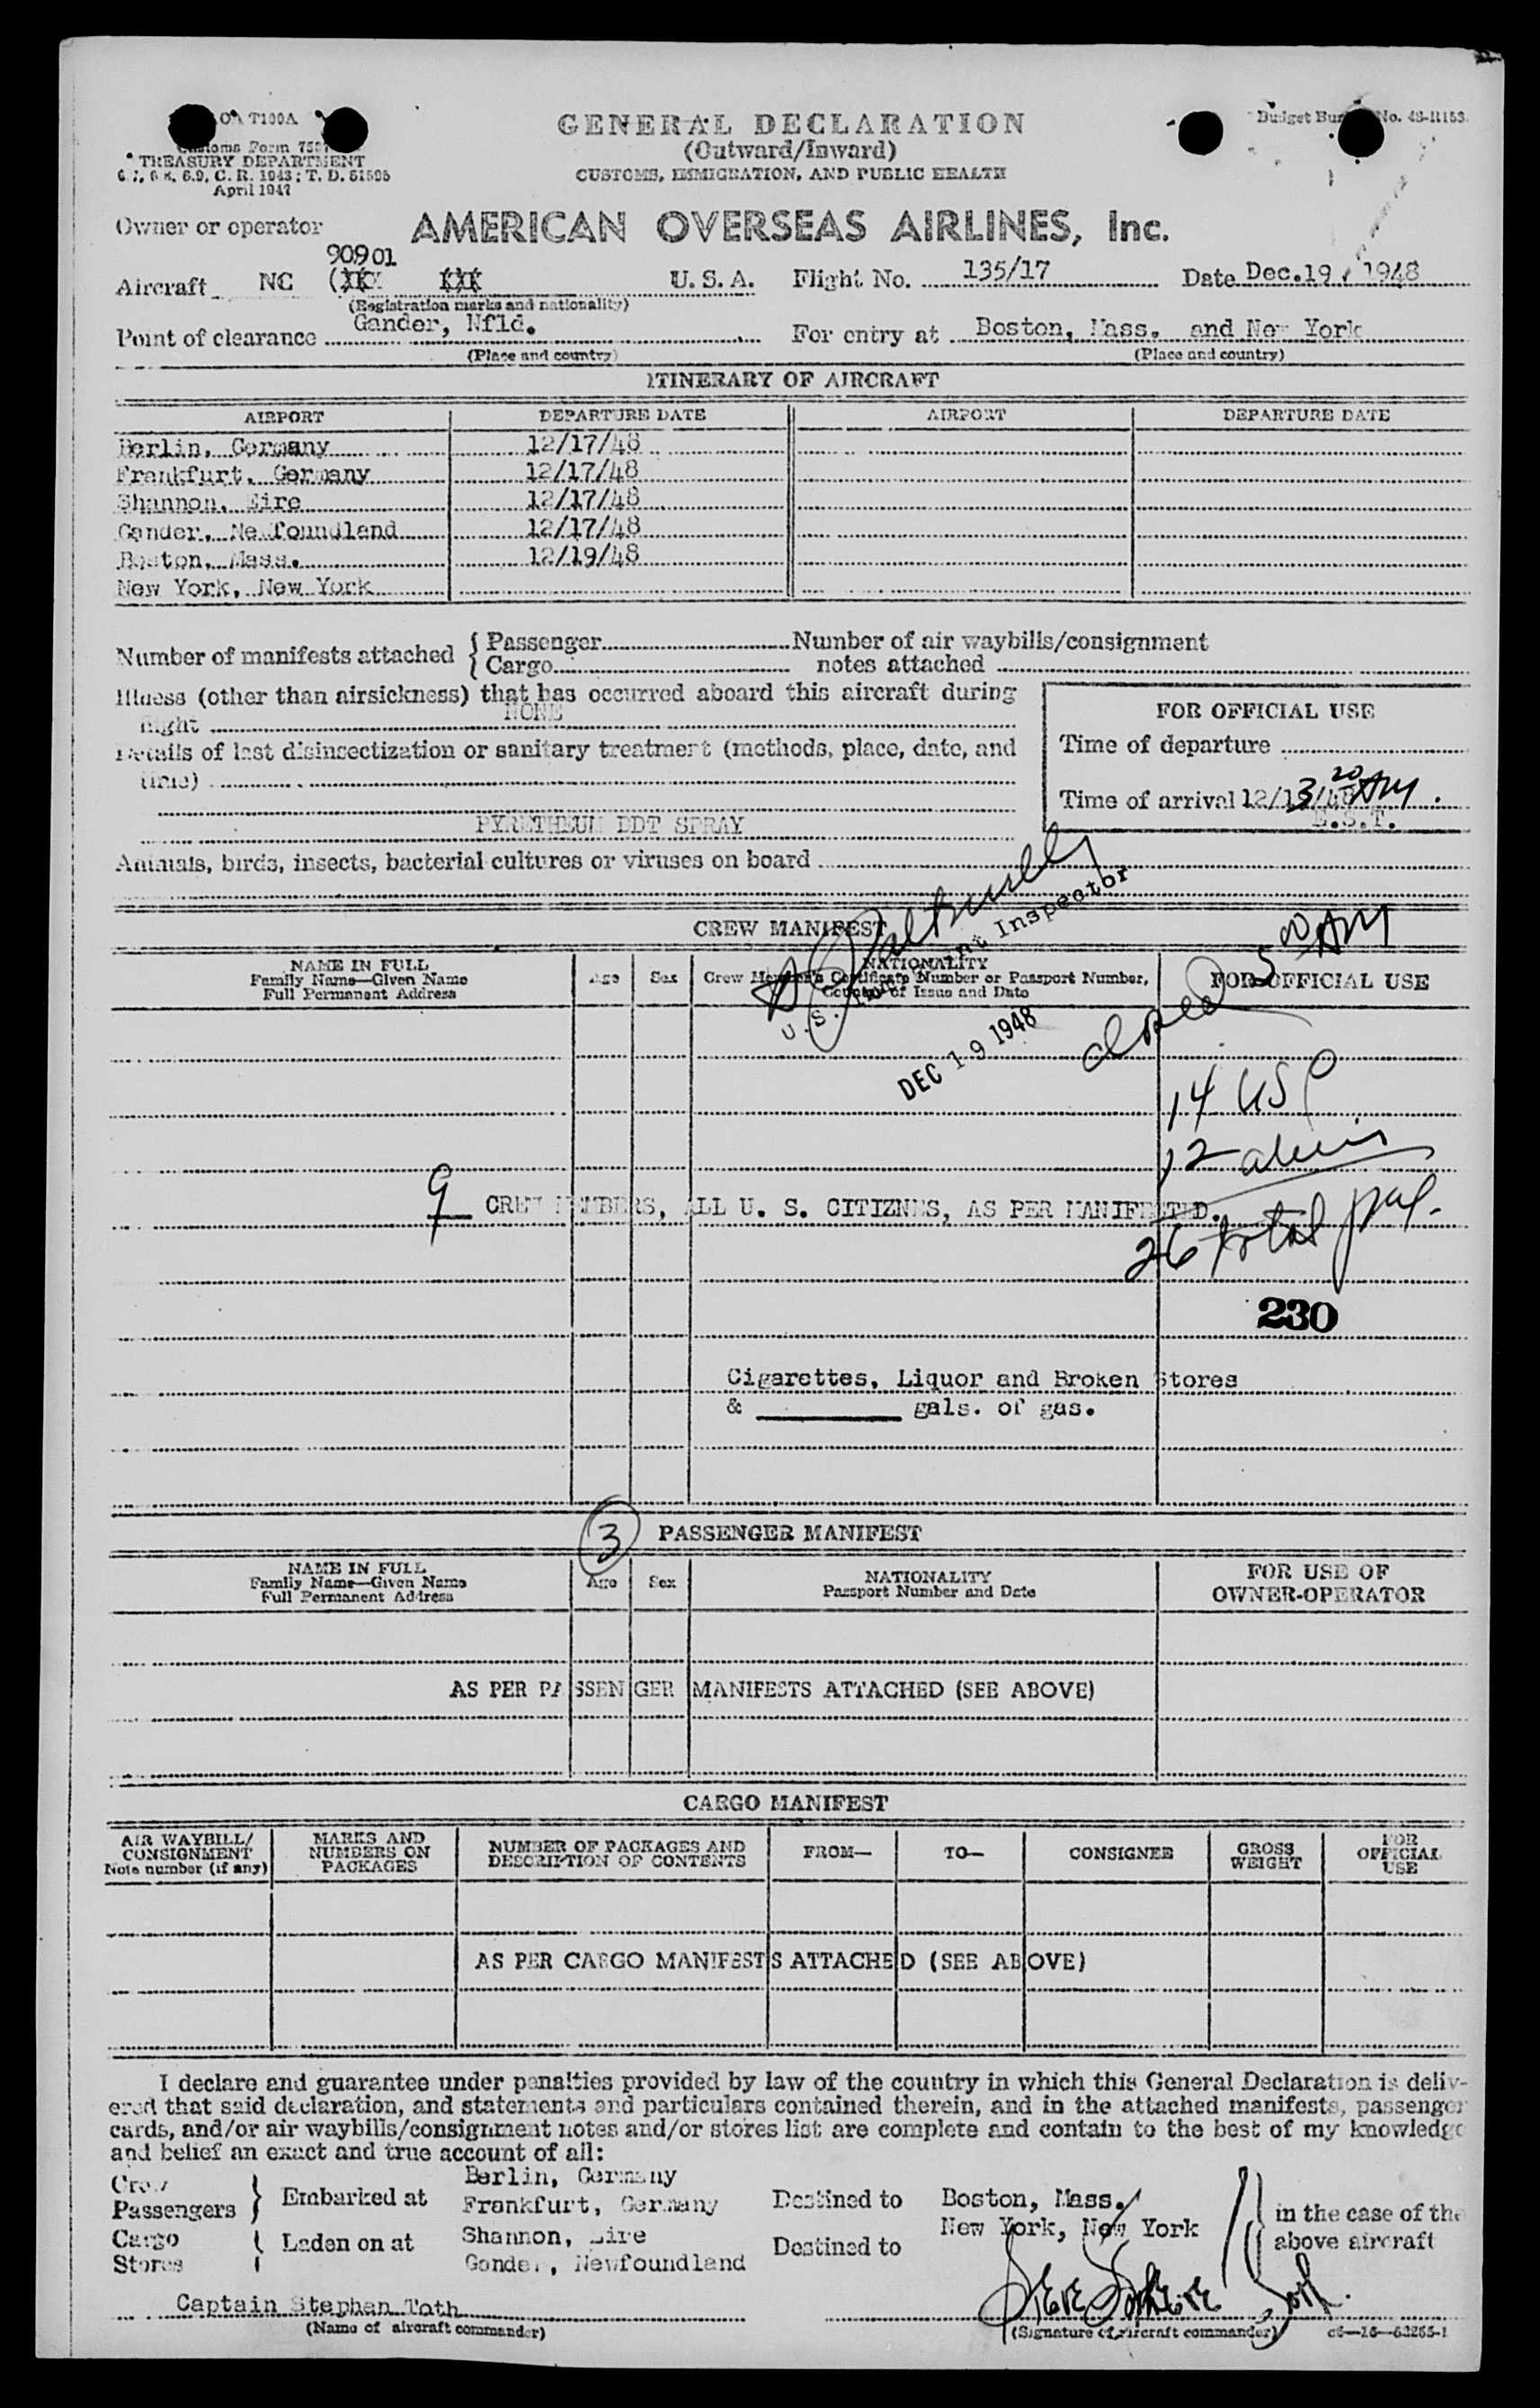 OA T100A
Customs Form 7507
TREASURY DEPARTMENT
April 1947
GENERAL DECLARATION
(Outward/Inward)
CUSTOMS, IMMIGRATION, AND PUBLIC HEALTH
Budget Bur No. 48-R153.
Owner or operator AMERICAN OVERSEAS AIRLINES, Inc.
90901
Aircraft NC U. S. A. Flight No. 135/17 Date Dec.19, 1948
(Registration marks and nationality)
Point of clearance Gander, Nfld. For entry at Boston, Mass. and New York
(Place and country) (Place and country)
ITINERARY OF AIRCRAFT
AIRPORT DEPARTURE DATE AIRPORT DEPARTURE DATE
Berlin, Germany 12/17/48
Frankfurt, Germany 12/17/48
Shannon, Eire 12/17/48
Gander, Newfoundland 12/17/48
Boston, Mass. 12/19/48
New York, New York
Number of manifests attached { Passenger Number of air waybills/consignment
Cargo notes attached
Illness (other than airsickness) that has occurred aboard this aircraft during
flight NONE
Details of last disinsectization or sanitary treatment (methods, place, date, and
time)
PYRETHEUM DDT SPRAY
Animals, birds, insects, bacterial cultures or viruses on board
FOR OFFICIAL USE
Time of departure
Time of arrival 3 20 AM.
E.S.T.
CREW MANIFEST
U.S. Immigrant Inspector
DEC 19 1948
NAME IN FULL
Family Name—Given Name
Full Permanent Address
Age Sex
NATIONALITY
Crew Member's Certificate Number or Passport Number,
Country of Issue and Date
FOR OFFICIAL USE
5 00 AM
14 USC
12 aliens
9 CREW MEMBERS, ALL U. S. CITIZNES, AS PER MANIFESTED.
26 total
230
Cigarettes, Liquor and Broken Stores
& gals. of gas.
3 PASSENGER MANIFEST
NAME IN FULL
Family Name—Given Name
Full Permanent Address
Age Sex
NATIONALITY
Passport Number and Date
FOR USE OF
OWNER-OPERATOR
AS PER PASSENGER MANIFESTS ATTACHED (SEE ABOVE)
CARGO MANIFEST
AIR WAYBILL/
CONSIGNMENT
Note number (if any)
MARKS AND
NUMBERS ON
PACKAGES
NUMBER OF PACKAGES AND
DESCRIPTION OF CONTENTS
FROM— TO— CONSIGNEE
GROSS
WEIGHT
FOR
OFFICIAL
USE
AS PER CARGO MANIFESTS ATTACHED (SEE ABOVE)
I declare and guarantee under penalties provided by law of the country in which this General Declaration is deliv-
ered that said declaration, and statements and particulars contained therein, and in the attached manifests, passenger
cards, and/or air waybills/consignment notes and/or stores list are complete and contain to the best of my knowledge
and belief an exact and true account of all:
Crew
Passengers } Embarked at
Cargo
Stores } Laden on at
Berlin, Germany
Frankfurt, Germany
Shannon, Eire
Gander, Newfoundland
Destined to Boston, Mass.
New York, New York
Destined to
in the case of the
above aircraft
Captain Stephen Toth
(Name of aircraft commander)
(Signature of aircraft commander)